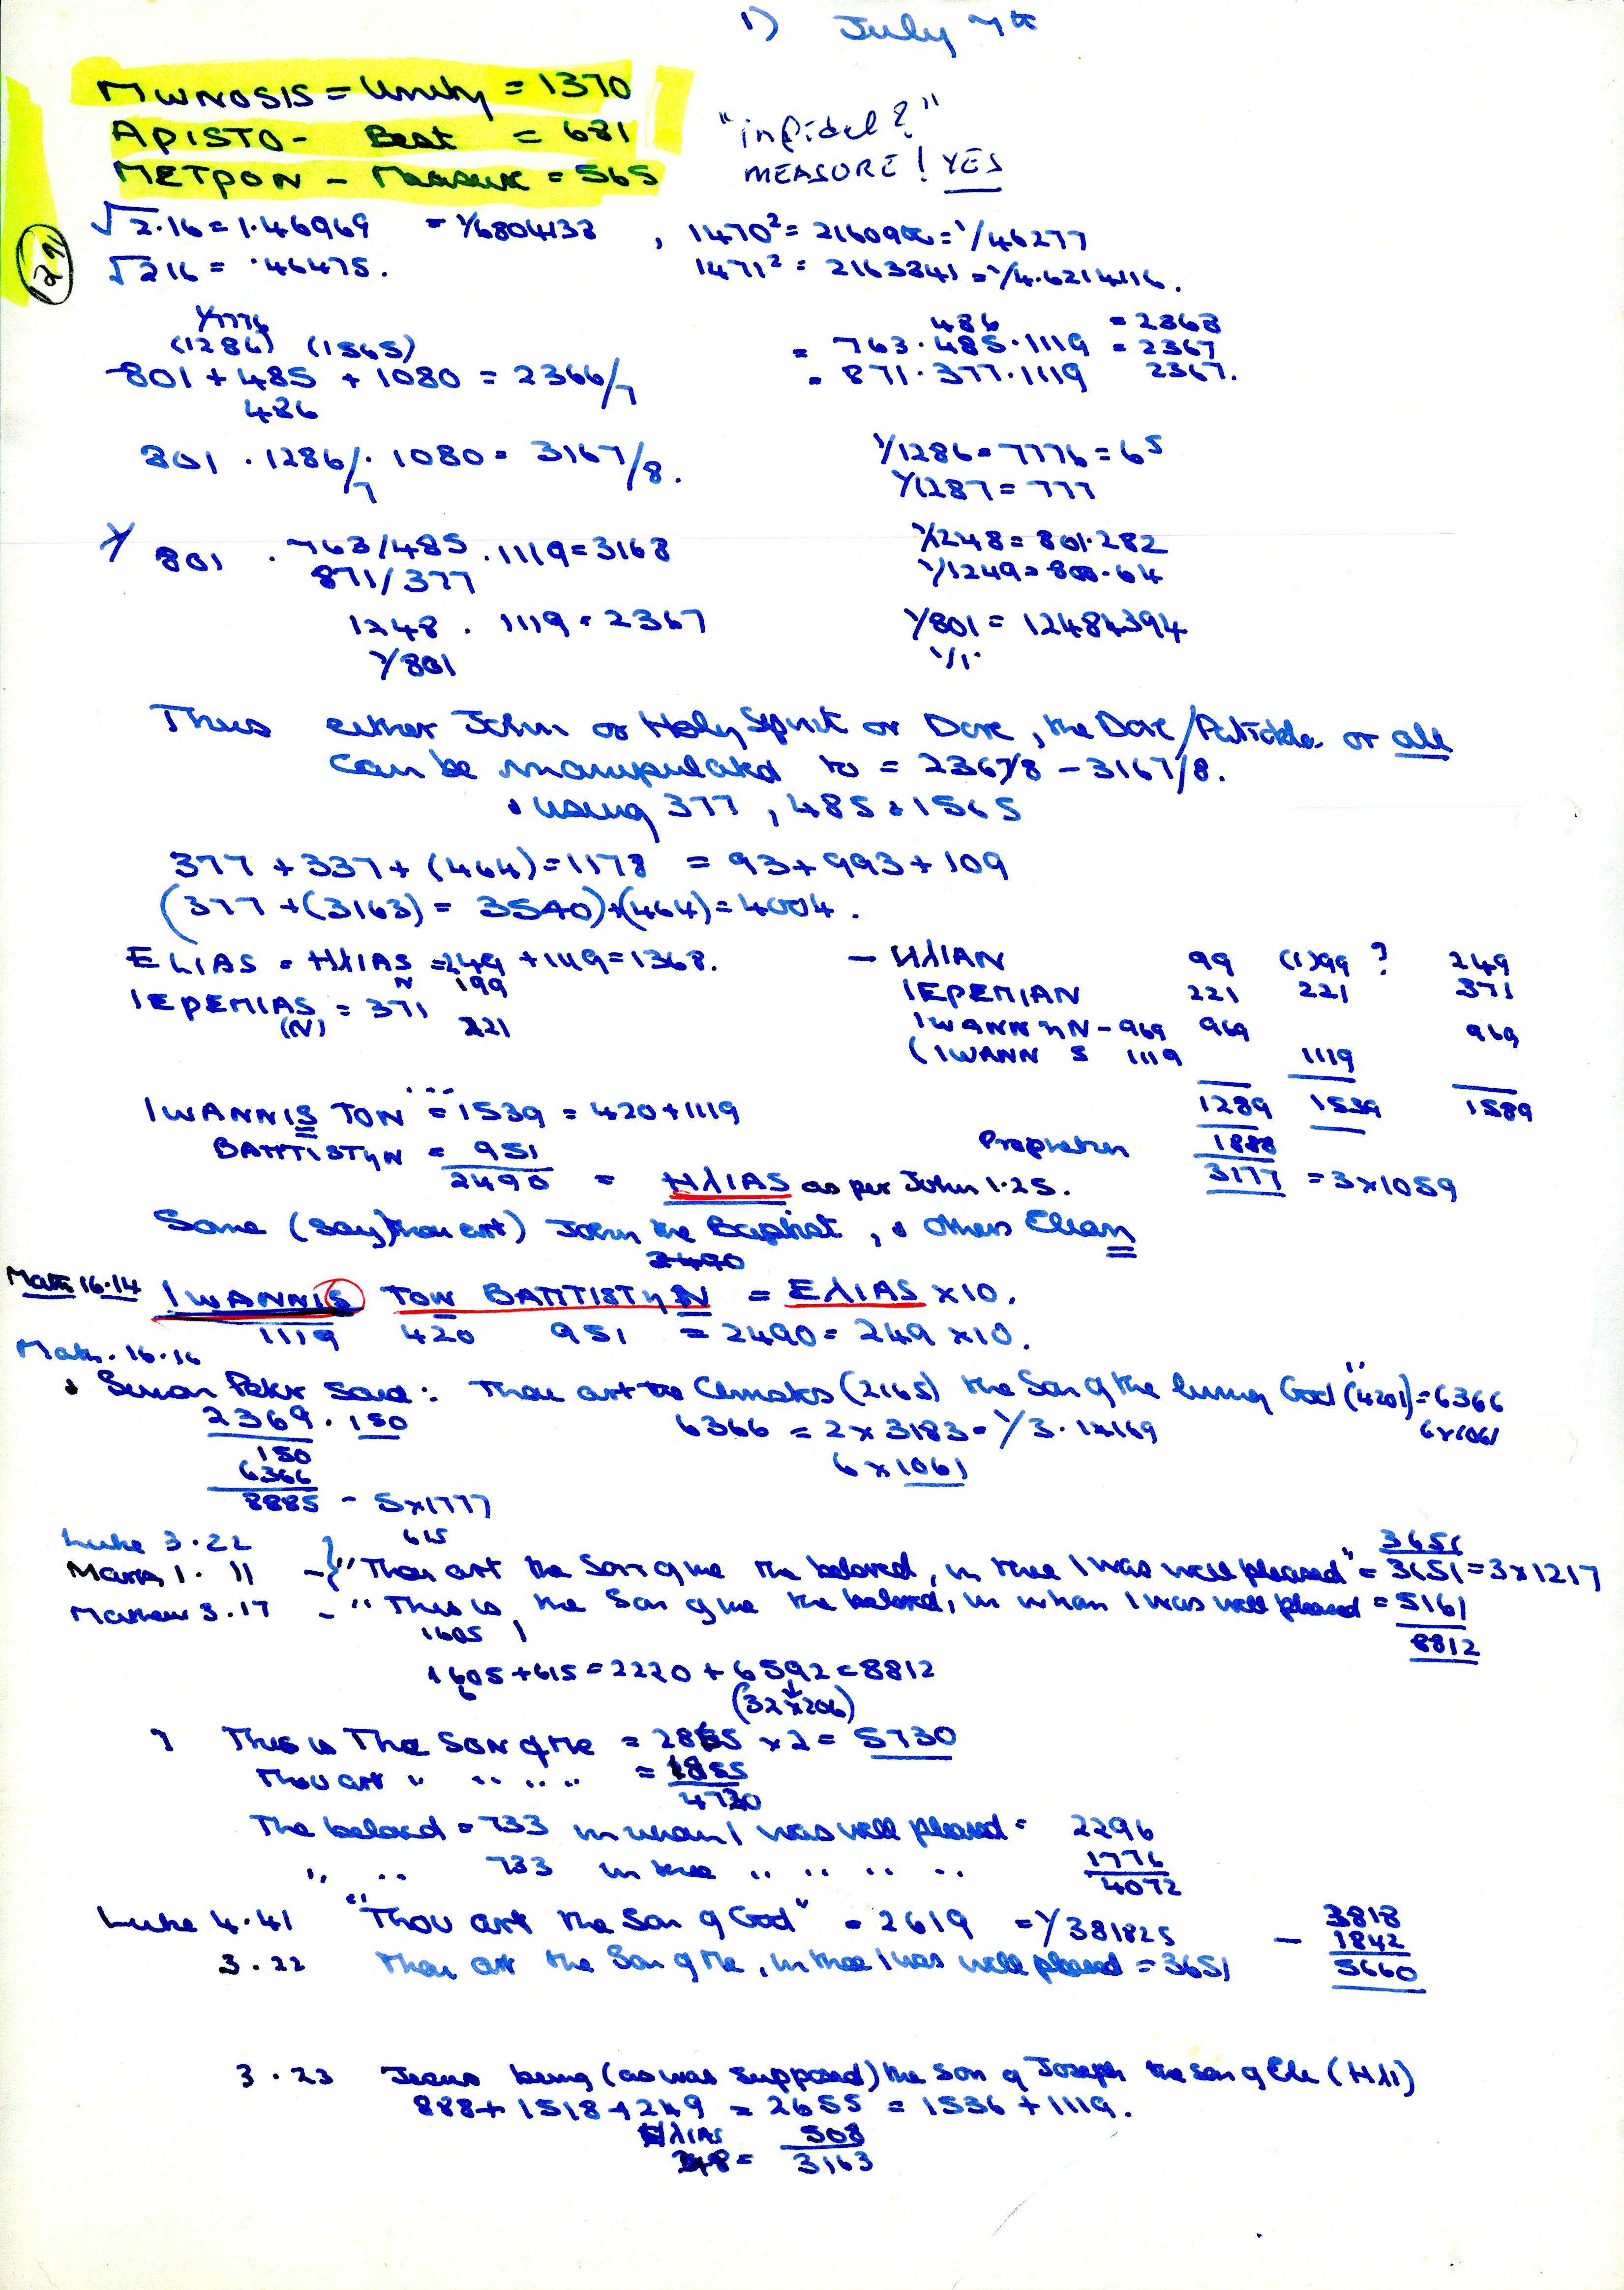 1) July 7th
MWNOSIS = Unity = 1370
APISTO - Best = 681
METPON - Measure = 565
"infidel?"
MEASURE! YES
129
√2.16 = 1.46969 = 1/6804138 , 1470² = 2160900 = 1/46277
√216 = .46475. 1471² = 2163841 = 1/4.6214116.
1/7776
(1286) (1565)
801 + 485 + 1080 = 2366/7
486
486 = 2368
= 763 . 485 . 1119 = 2367
= 871 . 377 . 1119 2367.
801 . 1286/7 . 1080 = 3167/8.
1/1286 = 7776 = 6⁵
1/1287 = 777
801 . 763/485 . 1119 = 3168
871/377
1/1248 = 801.282
1/1249 = 800.64
1248 . 1119 = 2367
1/801
1/801 = 12484394
1/1.
Thus either John or Holy Spirit or Dove, the Dove/ or all
can be manipulated to = 2367/8 - 3167/8.
using 377, 485 & 1565
377 + 337 + (464) = 1178 = 93 + 993 + 109
(377 + (3163) = 3540) + (464) = 4004.
ELIAS = HλIAS = 249 + 1119 = 1368.
N 199
IEPEMIAS = 371
(N) 221
- HλIAN 99 (1)99 ? 249
IEPEMIAN 221 221 371
IWANNηN - 969 969 969
(IWANN S 1119 1119
1289 1539 1589
Propheten 1888
3177 = 3x1059
IWANNIS TON = 1539 = 420 + 1119
BAΠTISTηN = 951
2490 = HλIAS as per John 1.25.
Some (say thou art) John the Baptist, & others Elian
2490
Matt 16.14 IWANNIS TON BAΠTISTηN = EλIAS x10.
1119 420 951 = 2490 = 249 x10.
Math. 16.16
Simon Peter Said: Thou art the Christos (2165) the Son of the living God" (4201) = 6366
2369 . 150 6366 = 2 x 3183 = 1/3.14169 6x1061
150 6 x 1061
6366
8885 - 5x1777
Luke 3.22 615 3651
Mark 1.11 - "Thou art the Son of me the beloved, in thee I was well pleased" = 3651 = 3x1217
Mathew 3.17 - "This is the Son of me the beloved, in whom I was well pleased = 5161
1605 8812
1605 + 615 = 2220 + 6592 = 8812
(32x206)
? This is The Son of Me = 2865 x 2 = 5730
Thou art " " " " = 1855
4720
The beloved = 733 in whom I was well pleased = 2296
" " 733 in thee " " " " 1776
4072
Luke 4.41 "Thou art the Son of God" = 2619 = 1/381825 3818
- 1842
3.22 Thou art the Son of Me, in thee I was well pleased = 3651 5660
3.23 Jesus being (as was supposed) the son of Joseph the son of Ele (Hλι)
888 + 1518 + 249 = 2655 = 1536 + 1119.
HλIAS 508
248 = 3163